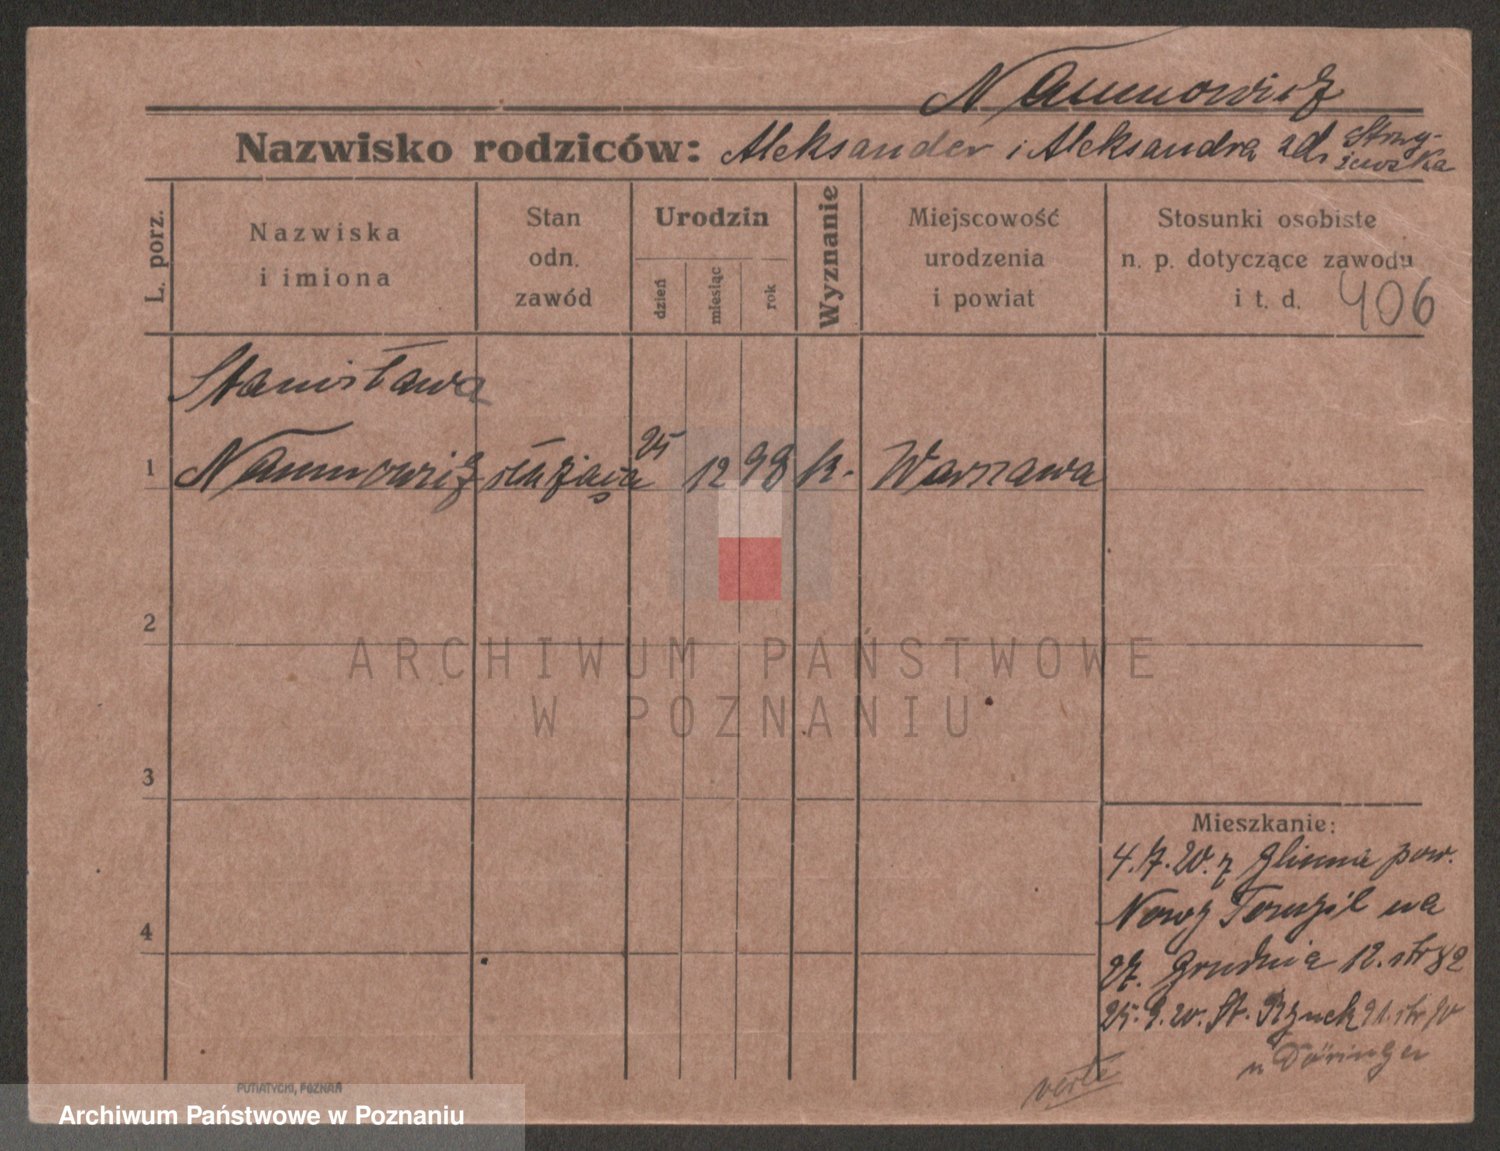 Naumowicz
Nazwisko rodziców: Aleksander i Aleksandra
L. porz.
Nazwiska
i imiona
Stan
odn.
zawód
Urodzin
dzień
miesiąc
rok
Wyznanie
Miejscowość
urodzenia
i powiat
Stosunki osobiste
n. p. dotyczące zawodu
i t. d.
406
Stanisława
1 Naumowicz służąca 25 12 98 k. Warszawa
2
3
4
Mieszkanie:
4.7.20. z Glinna pow.
Nowy Tomyśl na
27. Grudnia 12. str 82
25.9.20. St. Rynek 91. str
u Döringer
verte
PUTIATYCKI, POZNAŃ
ARCHIWUM PAŃSTWOWE
W POZNANIU
Archiwum Państwowe w Poznaniu